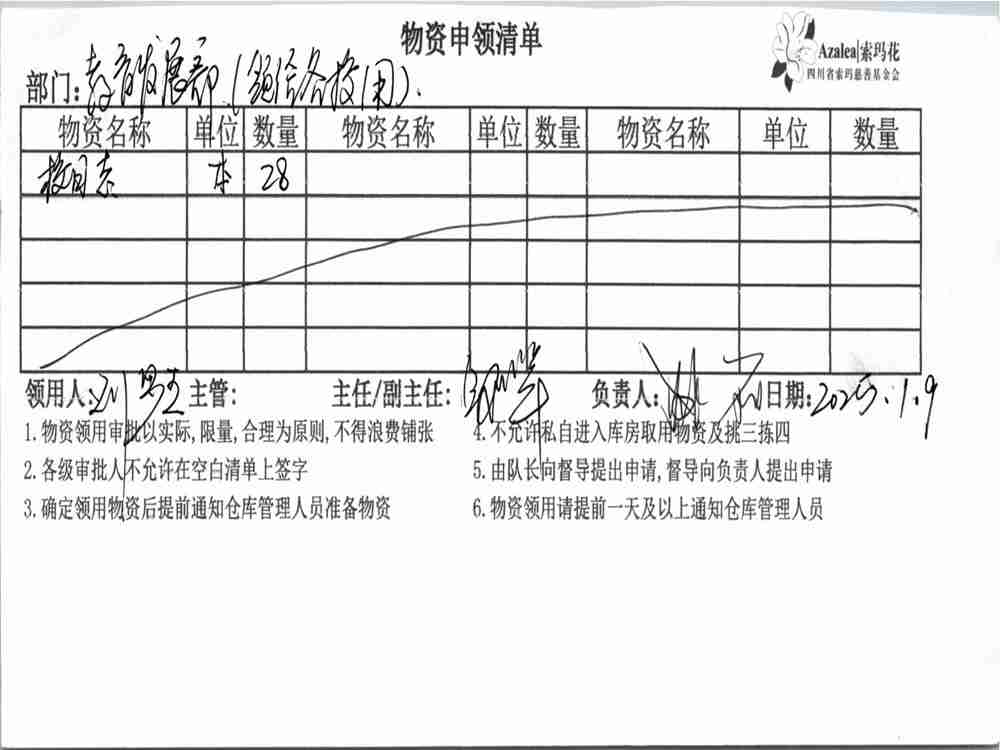 物资申领清单
Azalea|索玛花
四川省索玛慈善基金会
部门: 教育发展部(领给各校用).
物资名称 单位 数量 物资名称 单位 数量 物资名称 单位 数量
本 28
领用人: 刘 主管: 主任/副主任: 负责人: 日期: 2025.1.9
1.物资领用审批以实际,限量,合理为原则,不得浪费铺张
2.各级审批人不允许在空白清单上签字
3.确定领用物资后提前通知仓库管理人员准备物资
4.不允许私自进入库房取用物资及挑三拣四
5.由队长向督导提出申请,督导向负责人提出申请
6.物资领用请提前一天及以上通知仓库管理人员